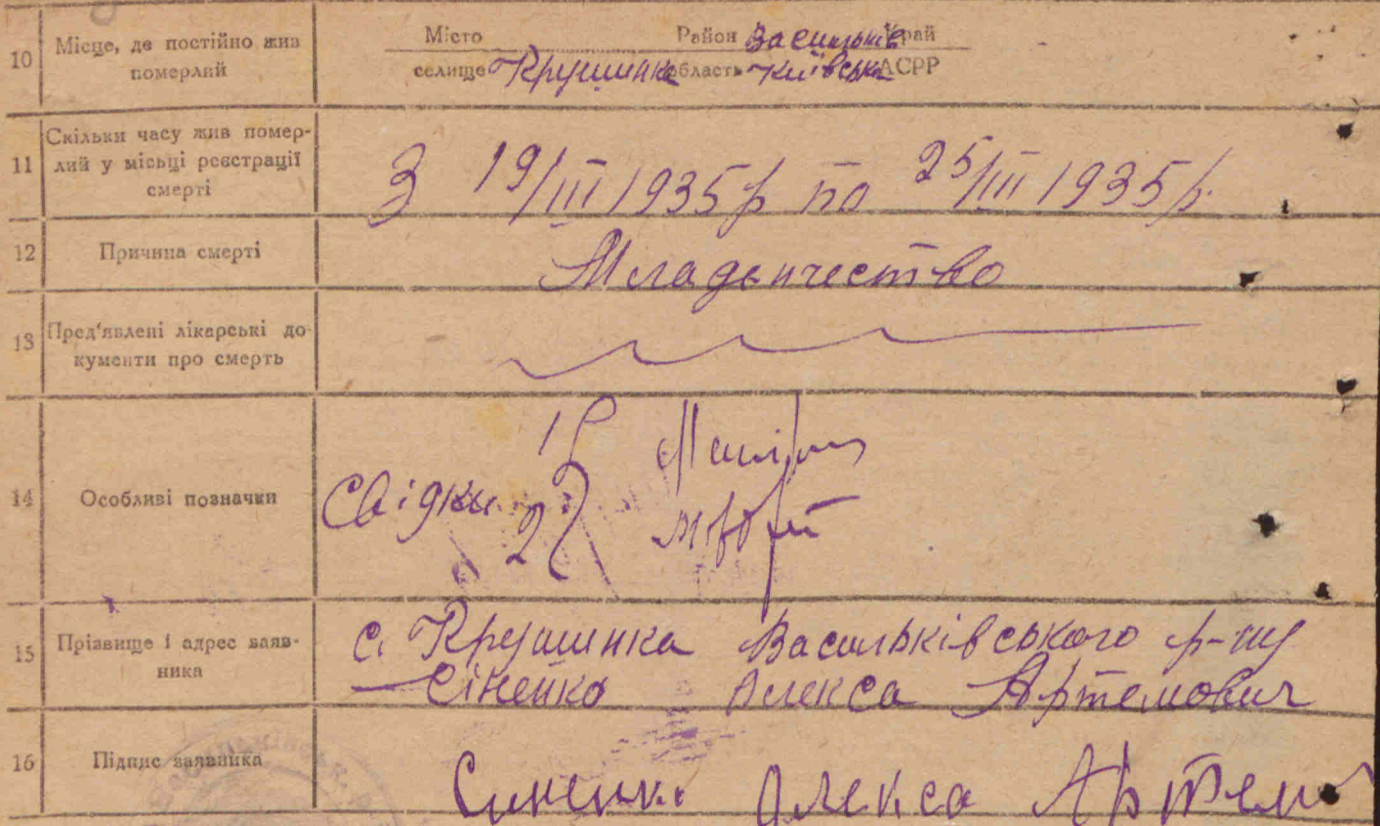 10 Місце, де постійно жив померлий
Місто Район Васильків край
селище Крушинка область Київська АСРР
11 Скільки часу жив помер-
лий у місьці реєстрації
смерті
З 19/III 1935 р по 25/III 1935 р.
12 Причина смерті
Младенчество
13 Пред'явлені лікарські до-
кументи про смерть
14 Особливі позначки
Свідки 1)
2)
15 Прізвище і адрес заяв-
ника
с. Крушинка Васильківського р-ну
Сіненко Алекса Артемович
16 Підпис заявника
Синенко Олекса Артем